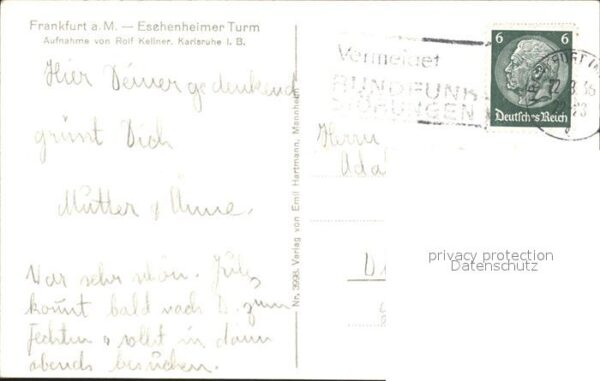 Frankfurt a. M. — Eschenheimer Turm
Aufnahme von Rolf Kellner, Karlsruhe i. B.
Hier Deiner gedenkend
grüsst Dich
Mutter & Änne.
War sehr schön.
kommt bald nach D. zum
fechten, sollst in dann
abends besuchen.
Nr. 3998. Verlag von Emil Hartmann, Mannheim
Vermeidet
RUNDFUNK
STÖRUNGEN
6 6
Deutsches Reich
Herrn
privacy protection
Datenschutz